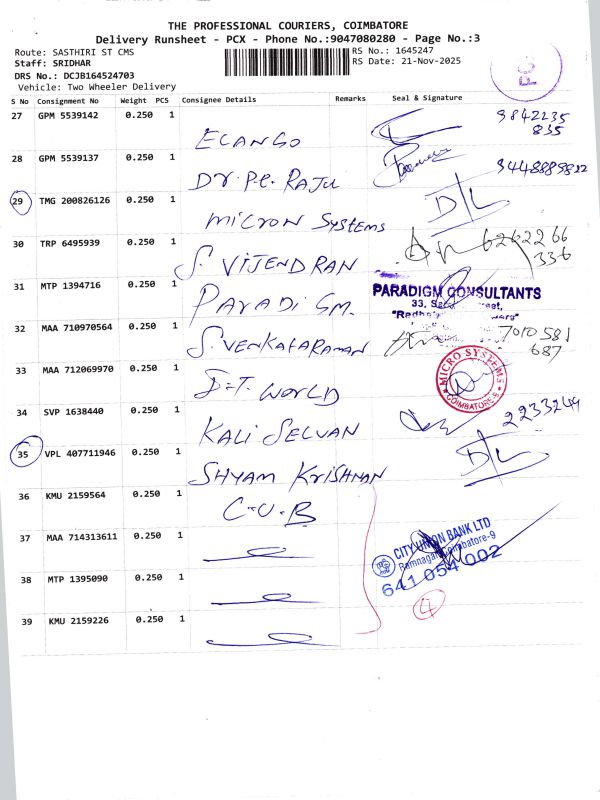 THE PROFESSIONAL COURIERS, COIMBATORE
Delivery Runsheet - PCX - Phone No.:9047080280 - Page No.:3
Route: SASTHIRI ST CMS RS No.: 1645247
Staff: SRIDHAR RS Date: 21-Nov-2025
DRS No.: DCJB164524703
Vehicle: Two Wheeler Delivery
S No Consignment No Weight PCS Consignee Details Remarks Seal & Signature
27 GPM 5539142 0.250 1 ELANGO 9842235
835
28 GPM 5539137 0.250 1 Dr. P.C. RAJU
29 TMG 200826126 0.250 1 MICRON Systems D/L
30 TRP 6495939 0.250 1 S. VIJENDRAN 6262266
336
31 MTP 1394716 0.250 1 PARADIGM. PARADIGM CONSULTANTS
33,
32 MAA 710970564 0.250 1 S. VENKATARAMAN 7010581
687
33 MAA 712069970 0.250 1 I-T. WORLD MICRO SYSTEMS COIMBATORE-9
34 SVP 1638440 0.250 1 KALI SELVAN 2233249
35 VPL 407711946 0.250 1 SHYAM KRISHNAN D/L
36 KMU 2159564 0.250 1 C-U-B
37 MAA 714313611 0.250 1 CITY UNION BANK LTD
Ramnagar, Coimbatore-9
641 054 002
38 MTP 1395090 0.250 1
4
39 KMU 2159226 0.250 1